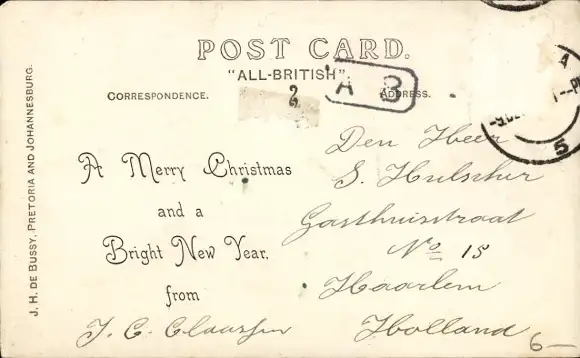 POST CARD.
"ALL-BRITISH"
CORRESPONDENCE.
ADDRESS.
2
A B
A
5
J. H. DE BUSSY, PRETORIA AND JOHANNESBURG.
A Merry Christmas
and a
Bright New Year,
from
J. C. Claassen
Den Heer
S. Hulscher
Gasthuisstraat
No 15
Haarlem
Holland
6—